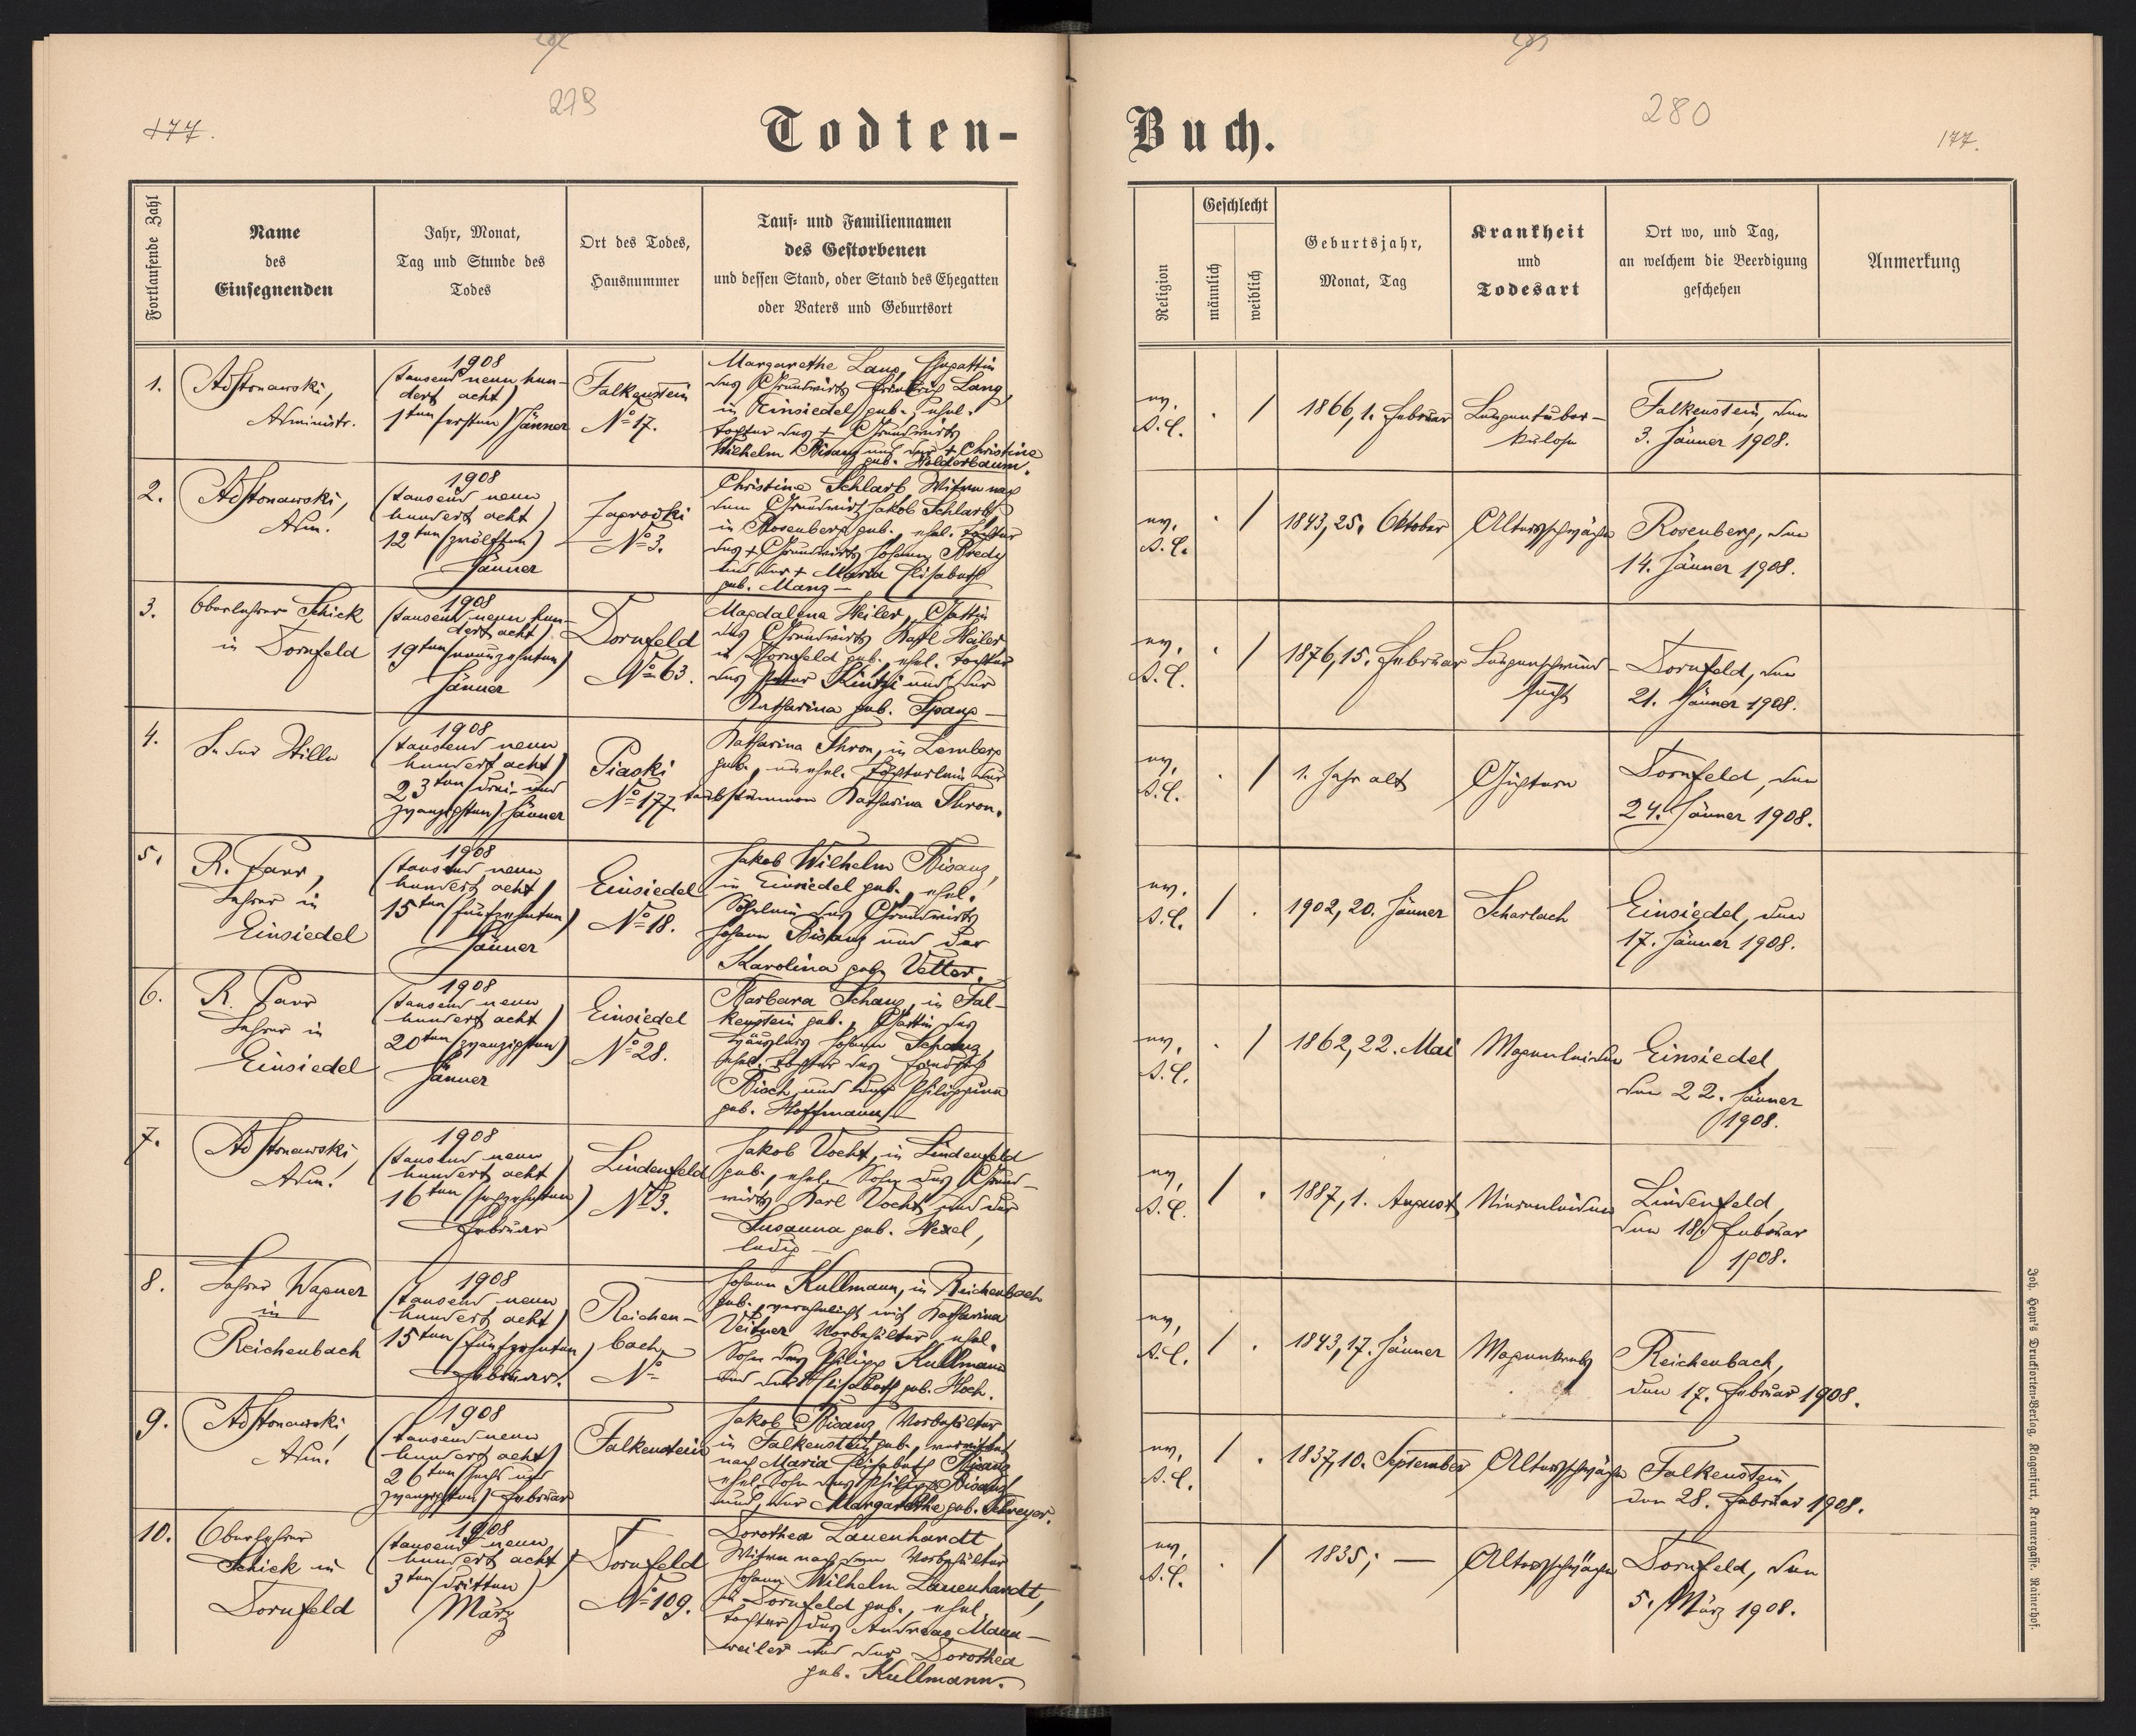 279
177.
Todten-
Fortlaufende Zahl
Name
des
Einsegnenden
Jahr, Monat,
Tag und Stunde des
Todes
Ort des Todes,
Hausnummer
Tauf- und Familiennamen
des Gestorbenen
und dessen Stand, oder Stand des Ehegatten
oder Vaters und Geburtsort
1.
Administr.
1908
(tausend neun hun-
dert acht)
1ten (ersten) Jänner
Falkenstein
No 17.
Margarethe Lang, Ehegattin
des Grundwirts Friedrich Lang,
in Einsiedel geb., ehel.
Tochter des + Grundwirts
Wilhelm Bisanz und der + Christine
geb. Wilderbaum.
2.
Adm.
1908
(tausend neun
hundert acht)
12ten (zwölften)
Jänner
No 3.
Christine Schlarb, Witwe nach
dem Grundwirt Jakob Schlarb,
in Rosenberg geb., ehel. Tochter
des + Grundwirts Johann
und der + Maria Elisabeth
geb. Manz –
3.
Oberlehrer Schick
in Dornfeld
1908
(tausend neun hun-
dert acht)
19ten (neunzehnten)
Jänner
Dornfeld
No 63.
Magdalena Weiler, Gattin
des Grundwirts Weiler
in Dornfeld geb., ehel. Tochter
des Peter Kintzi und der
Katharina geb. Spang –
4.
In der Stille
1908
(tausend neun
hundert acht)
23ten (drei- und
zwanzigsten) Jänner
Piaski
No 177.
Katharina Thron, in Lemberg
geb., unehel. Töchterlein der
taubstummen Katharina Thron.
5.
Lehrer in
Einsiedel
1908
(tausend neun
hundert acht)
15ten (fünfzehnten)
Jänner
Einsiedel
No 18.
Jakob Wilhelm Bisanz,
in Einsiedel geb., ehel.
Söhnlein des Grundwirts
Johann Bisanz und der
Karolina geb. Vetter.
6.
Lehrer in
Einsiedel
1908
(tausend neun
hundert acht)
20ten (zwanzigsten)
Jänner
Einsiedel
No 28.
Barbara Schanz, in Fal-
kenstein geb., Gattin des
Häuslers Johann Schanz,
ehel. Tochter des Friedrich
und Philippina
geb. Hoffmann –
7.
Adm.
1908
(tausend neun
hundert acht
16ten (sechzehnten)
Februar
Lindenfeld
No 3.
Jakob Vocht, in Lindenfeld
geb., ehel. Sohn des Grund-
wirts Karl Vocht und der
Susanna geb. Hexel,
ledig –
8.
Lehrer Wagner
in
Reichenbach
1908
(tausend neun
hundert acht)
15ten (fünfzehnten)
Februar.
Reichen-
bach
No
Johann Kullmann, in Reichenbach
geb., verehelicht mit Katharina
Veitner Vorbehälter, ehel.
Sohn des Philipp Kullmann
und der Elisabeth geb. Koch.
9.
Adm.
1908
(tausend neun
hundert acht)
26ten (sechs und
zwanzigsten) Februar
Falkenstein
Jakob Bisanz, Vorbehälter
in Falkenstein geb., verwitwet
nach Maria Elisabeth Bisanz
ehel. Sohn des Philipp Bisanz
und der Margarethe geb. Schreyer.
10.
Oberlehrer
Schick in
Dornfeld
1908
(tausend neun
hundert acht)
3ten (dritten)
März
Dornfeld
No 109.
Dorothea Lauenhardt
Witwe nach dem Vorbehälter
Johann Wilhelm Lauenhardt,
in Dornfeld geb., ehel.
Tochter des Andreas Mann-
weiler und der Dorothea
geb. Kullmann.
280
177.
Buch.
Religion
Geschlecht
männlich
weiblich
Geburtsjahr,
Monat, Tag
Krankheit
und
Todesart
Ort wo, und Tag,
an welchem die Beerdigung
geschehen
Anmerkung
ev.
A.C.
. /
1866, 1. Februar
Lungentuber-
kulose
Falkenstein, den
3. Jänner 1908.
ev.
A.C.
. /
1843, 25. Oktober
Altersschwäche
Rosenberg, den
14. Jänner 1908.
ev.
A.C.
. /
1876, 15. Februar
Lungenschwind-
sucht
Dornfeld, den
21. Jänner 1908.
ev.
A.C.
. /
1. Jahr alt
Dornfeld, den
24. Jänner 1908.
ev.
A.C.
/ .
1902, 20. Jänner
Scharlach
Einsiedel, den
17. Jänner 1908.
ev.
A.C.
. /
1862, 22. Mai
Magenleiden
Einsiedel,
den 22. Jänner
1908.
ev.
A.C.
/ .
1887, 1. August
Nierenleiden
Lindenfeld,
den 18. Februar
1908.
ev.
A.C.
/ .
1843, 17. Jänner
Magenkrebs
Reichenbach,
den 17. Februar 1908.
ev.
A.C.
/ .
1837, 10. September
Altersschwäche
Falkenstein,
den 28. Februar 1908.
ev.
A.C.
. /
1835; —
Altersschwäche
Dornfeld, den
5. März 1908.
Joh. Heyn's Drucksorten-Verlag, Klagenfurt, Kramergasse, Rainerhof.